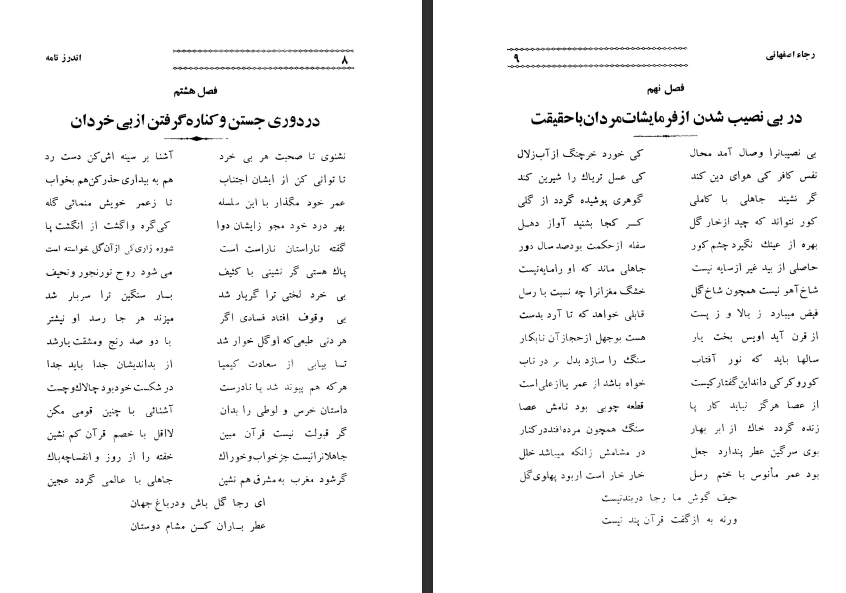 اندرز نامه
۸
فصل هشتم
در دوری جستن و کناره گرفتن از بی خردان
نشنوی تا صحبت هر بی خرد آشنا بر سینه اش کن دست رد
تا توانی کن از ایشان اجتناب هم به بیداری حذر کن هم بخواب
عمر خود مگذار با این سلسله تا زعمر خویش منمائی گله
بهر درد خود مجو زایشان دوا کی گره واگشت از انگشت پا
گفته ناراستان ناراست است شوره زاری کی از آن گل خواسته است
پاك هستی گر نشینی با کثیف می شود روح تو رنجور و نحیف
بی خرد لختی ترا گر یار شد بار سنگین ترا سربار شد
بی وقوف افتاد فسادی اگر میزند هر جا رسد او نیشتر
هر دنی طبعی که او گل خوار شد با دو صد رنج و مشقت یار شد
تا بیابی از سعادت کیمیا از بداندیشان جدا باید جدا
هر که هم پیوند شد با نادرست در شکست خود بود چالاك و چست
داستان خرس و لوطی را بدان آشنائی با چنین قومی مکن
گر قبولت نیست قرآن مبین لااقل با خصم قرآن کم نشین
جاهلانرا نیست جز خواب و خوراك خفته را از روز و انفساچه باك
گر شود مغرب به مشرق هم نشین جاهلی با عالمی گردد عجین
ای رجا گل باش و در باغ جهان
عطر باران کن مشام دوستان
رجاء اصفهانی
۹
فصل نهم
در بی نصیب شدن از فرمایشات مردان با حقیقت
بی نصیبانرا وصال آمد محال کی خورد خرچنگ از آب زلال
نفس کافر کی هوای دین کند کی عسل تریاك را شیرین کند
گر نشیند جاهلی با کاملی گوهری پوشیده گردد از گلی
کور نتواند که چید از خار گل کر کجا بشنید آواز دهل
بهره از عینك نگیرد چشم کور سفله از حکمت بود صد سال دور
حاصلی از بید غیر از سایه نیست جاهلی ماند که او را مایه نیست
شاخ آهو نیست همچون شاخ گل خشگ مغزانرا چه نسبت با رسل
فیض میبارد ز بالا و ز پست قابلی خواهد که تا آرد بدست
از قرن آید اویس بخت یار هست بوجهل از حجاز آن نابکار
سالها باید که نور آفتاب سنگ را سازد بدل بر در ناب
کور و کر کی داند این گفتار کیست خواه باشد از عمر یا از علی است
از عصا هرگز نیاید کار پا قطعه چوبی بود نامش عصا
زنده گردد خاك از ابر بهار سنگ همچون مرده افتد در کنار
بوی سرگین عطر پندارد جعل در مشامش زانکه میباشد خلل
بود عمر مأنوس با ختم رسل خار خار است ار بود پهلوی گل
حیف گوش ما رجا در بند نیست
ورنه به از گفت قرآن پند نیست